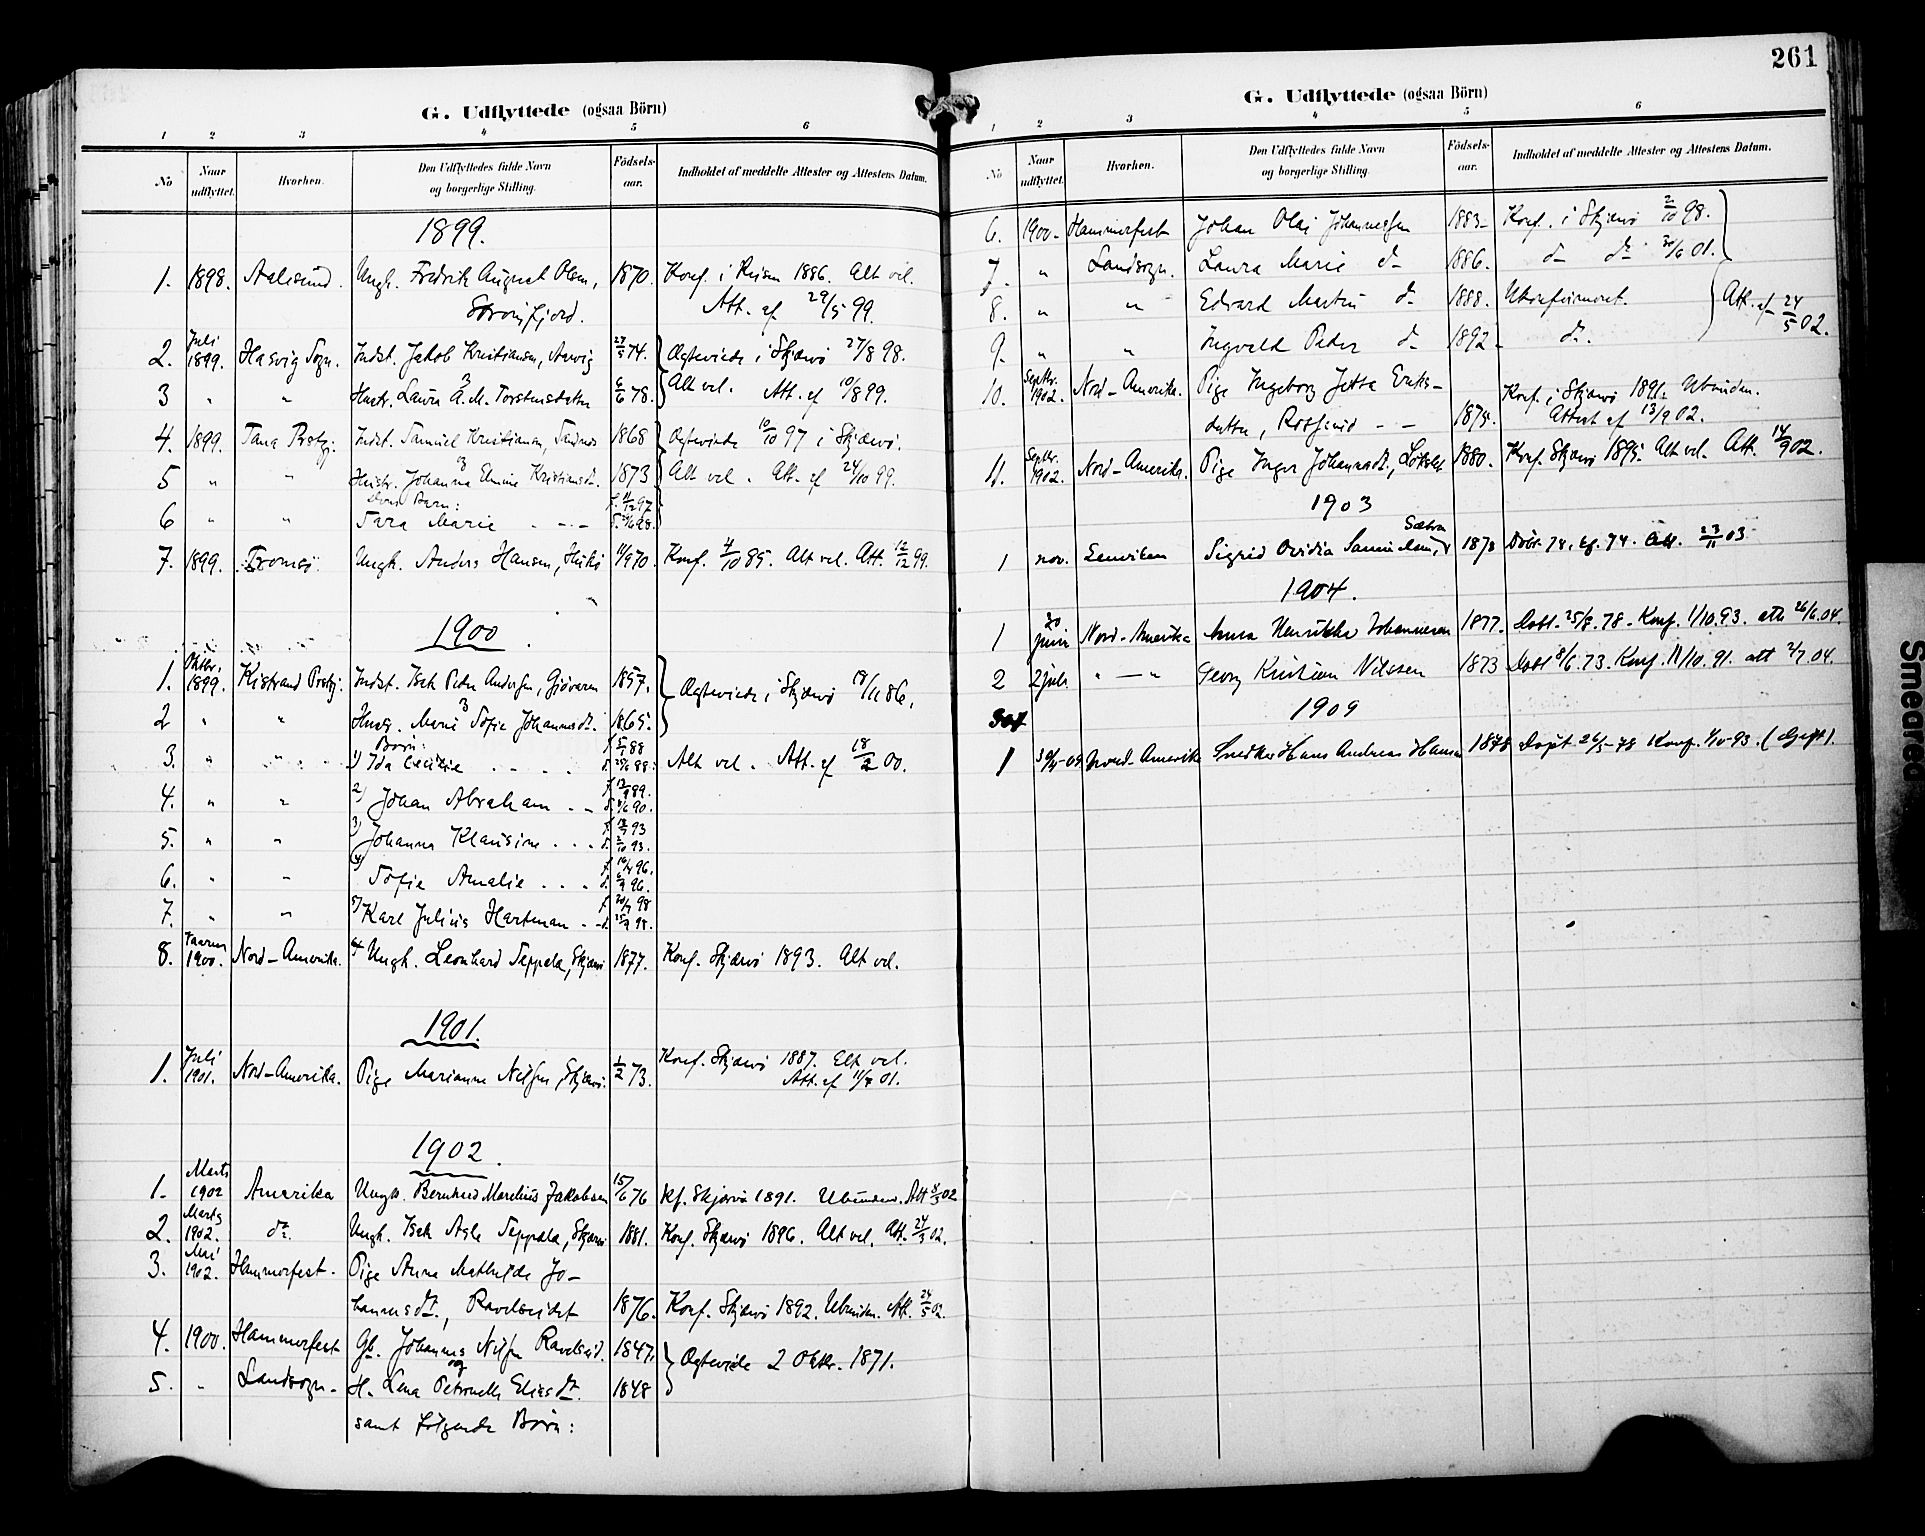 G. Udflyttede (ogsaa Börn)
1 2 3 4 5 6
No Naar udflyttet. Hvorhen. Den Udflyttedes fulde Navn og borgerlige Stilling. Födsels-aar. Indholdet af meddelte Attester og Attestens Datum.
1899.
1. 1898. Aalesund. Ungk. Fredrik August Olsen, 1870. Konf. i 1886. Alt vel.
Att. af 29/5 99.
2. Juli 1899. Hasvig Sogn. Indst. Jakob Kristiansen, 74. Ægteviede i Skjærvö 27/8 98.
3 " " Hustr. Laura A. M. Torstensdatter 78. Alt vel. Att. af 10/8 99.
4. 1899. Tana Prstgj. Indst. Samuel Kristiansen, 1868 Ægteviede 10/10 97 i Skjærvö.
5 " " Hustr. Johanna Elmine Kristiansdt. 1873 Alt vel. Att. af 24/10 99.
Börn:
6 " " Sara Marie - - -
7. 1899. Tromsö. Ungk. Anders Hansen, 11/9 70. Konf. 4/10 85. Alt vel. Att. 12/12 99.
1900.
1. Oktbr. 1899. Kistrand Prstgj. Indst. Isak Peder Andersen, Gjövaren 1857. Ægteviede i Skjærvö 18/11 86.
2 " " Hustr. Marie Sofie Johannesdt. 1865.
Börn:
3. " " 1) Ida Cecilie Alt vel. Att. af 18/2 00.
4. " " 2) Johan Abraham - -
5. " " 3) Johanna Klausine . . .
6. " " 4) Sofie Amalie . . .
7. " " 5) Karl Julius Hartman - -
8. 1900. Nord-Amerika. Ungk. Leonhard Seppala, Skjærvö 1877. Konf. Skjærvö 1893. Alt vel.
1901.
1. Juli 1901. Nord-Amerika. Pige Marianne Nilsen, Skjærvö. 1/2 73. Konf. Skjærvö 1887. Alt vel.
Att. af 11/7 01.
1902.
1. Marts 1902 Amerika Ungk. Bernhard Marelius Jakobsen 15/6 76 kf. Skjærvö 1891. Ubunden. Att 02
2. Marts 1902. do. Ungk. Isak Asle Seppala, Skjærvö 1881. Konf. Skjærvö 1896. Alt vel. Att. 24/3 02.
3. Mai 1902. Hammerfest. Pige Anna Mathilde Jo-
hannesdt., Ravelseidet 1876. Konf. Skjærvö 1892. Ubunden. Att. 24/5 02.
4. 1900. Hammerfest Gb. Johannes Nilsen Ravelseid. 1847. Ægteviede 2 Oktbr. 1871.
og
5. " Landsogn. H. Lena Petronelle Eliasdt. 1848
samt følgende Børn:
261
G. Udflyttede (ogsaa Börn)
1 2 3 4 5 6
No Naar udflyttet. Hvorhen. Den Udflyttedes fulde Navn og borgerlige Stilling. Födsels-aar. Indholdet af meddelte Attester og Attestens Datum.
6. 1900. Hammerfest Johan Olai Johannessen 1883. Konf. i Skjærvö 2/10 98.
7. " Landsogn. Laura Marie do 1886. do do 30/6 01.
8. " " Edvard Martin do 1888. Ukonfirmeret. Att. af 24/5 02.
9. " " Ingvald Peder do 1892. do.
10. Septbr. 1902. Nord-Amerika. Pige Ingeborg Jetta Eriks-
datter, - - 1875. Konf. i Skjærvö 1891. Ubunden. Attest af 13/9 02.
11. Septbr. 1902. Nord-Amerika. Pige Inger Johannesdt., 1880. Konf. Skjærvö 1895. Alt vel. Att. 14/9 02.
1903
1 nov. Lenviken Sigrid Ovidia 1878 Att. 23/11 03.
1904.
1 juni Nord-Amerika Anna Henrikke Johannesen 1877. Døbt. 25/8. 78. Konf. 1/10. 93. att. 26/6. 04.
2 2 juli " — " Georg Kristian Nilssen 1873 Døbt 8/6. 73. Konf. 11/10. 91. att 2/7. 04.
1909
1 Nord-Amerika Snedker Hans Andreas Hansen 1878 Døpt 26/5-78 Konf. 1/10-93. (Gift).
Smeared